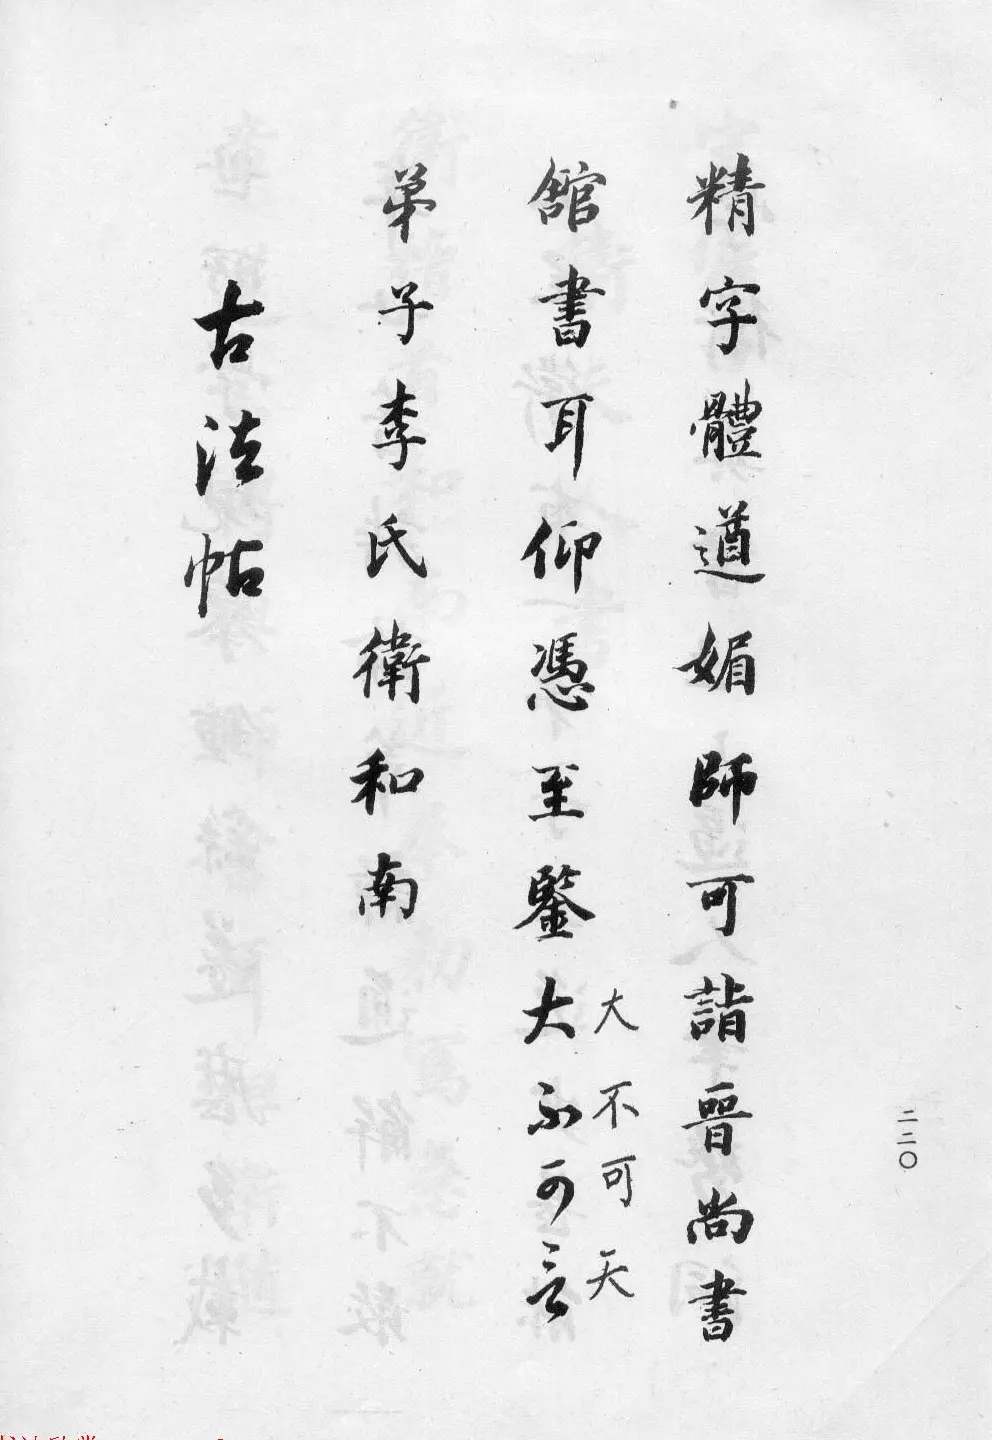 精字體遒媚師可詣晉尚書
舘書耳仰憑至鑒大不可言
大不可天
弟子李氏衛和南
古法帖
二二〇